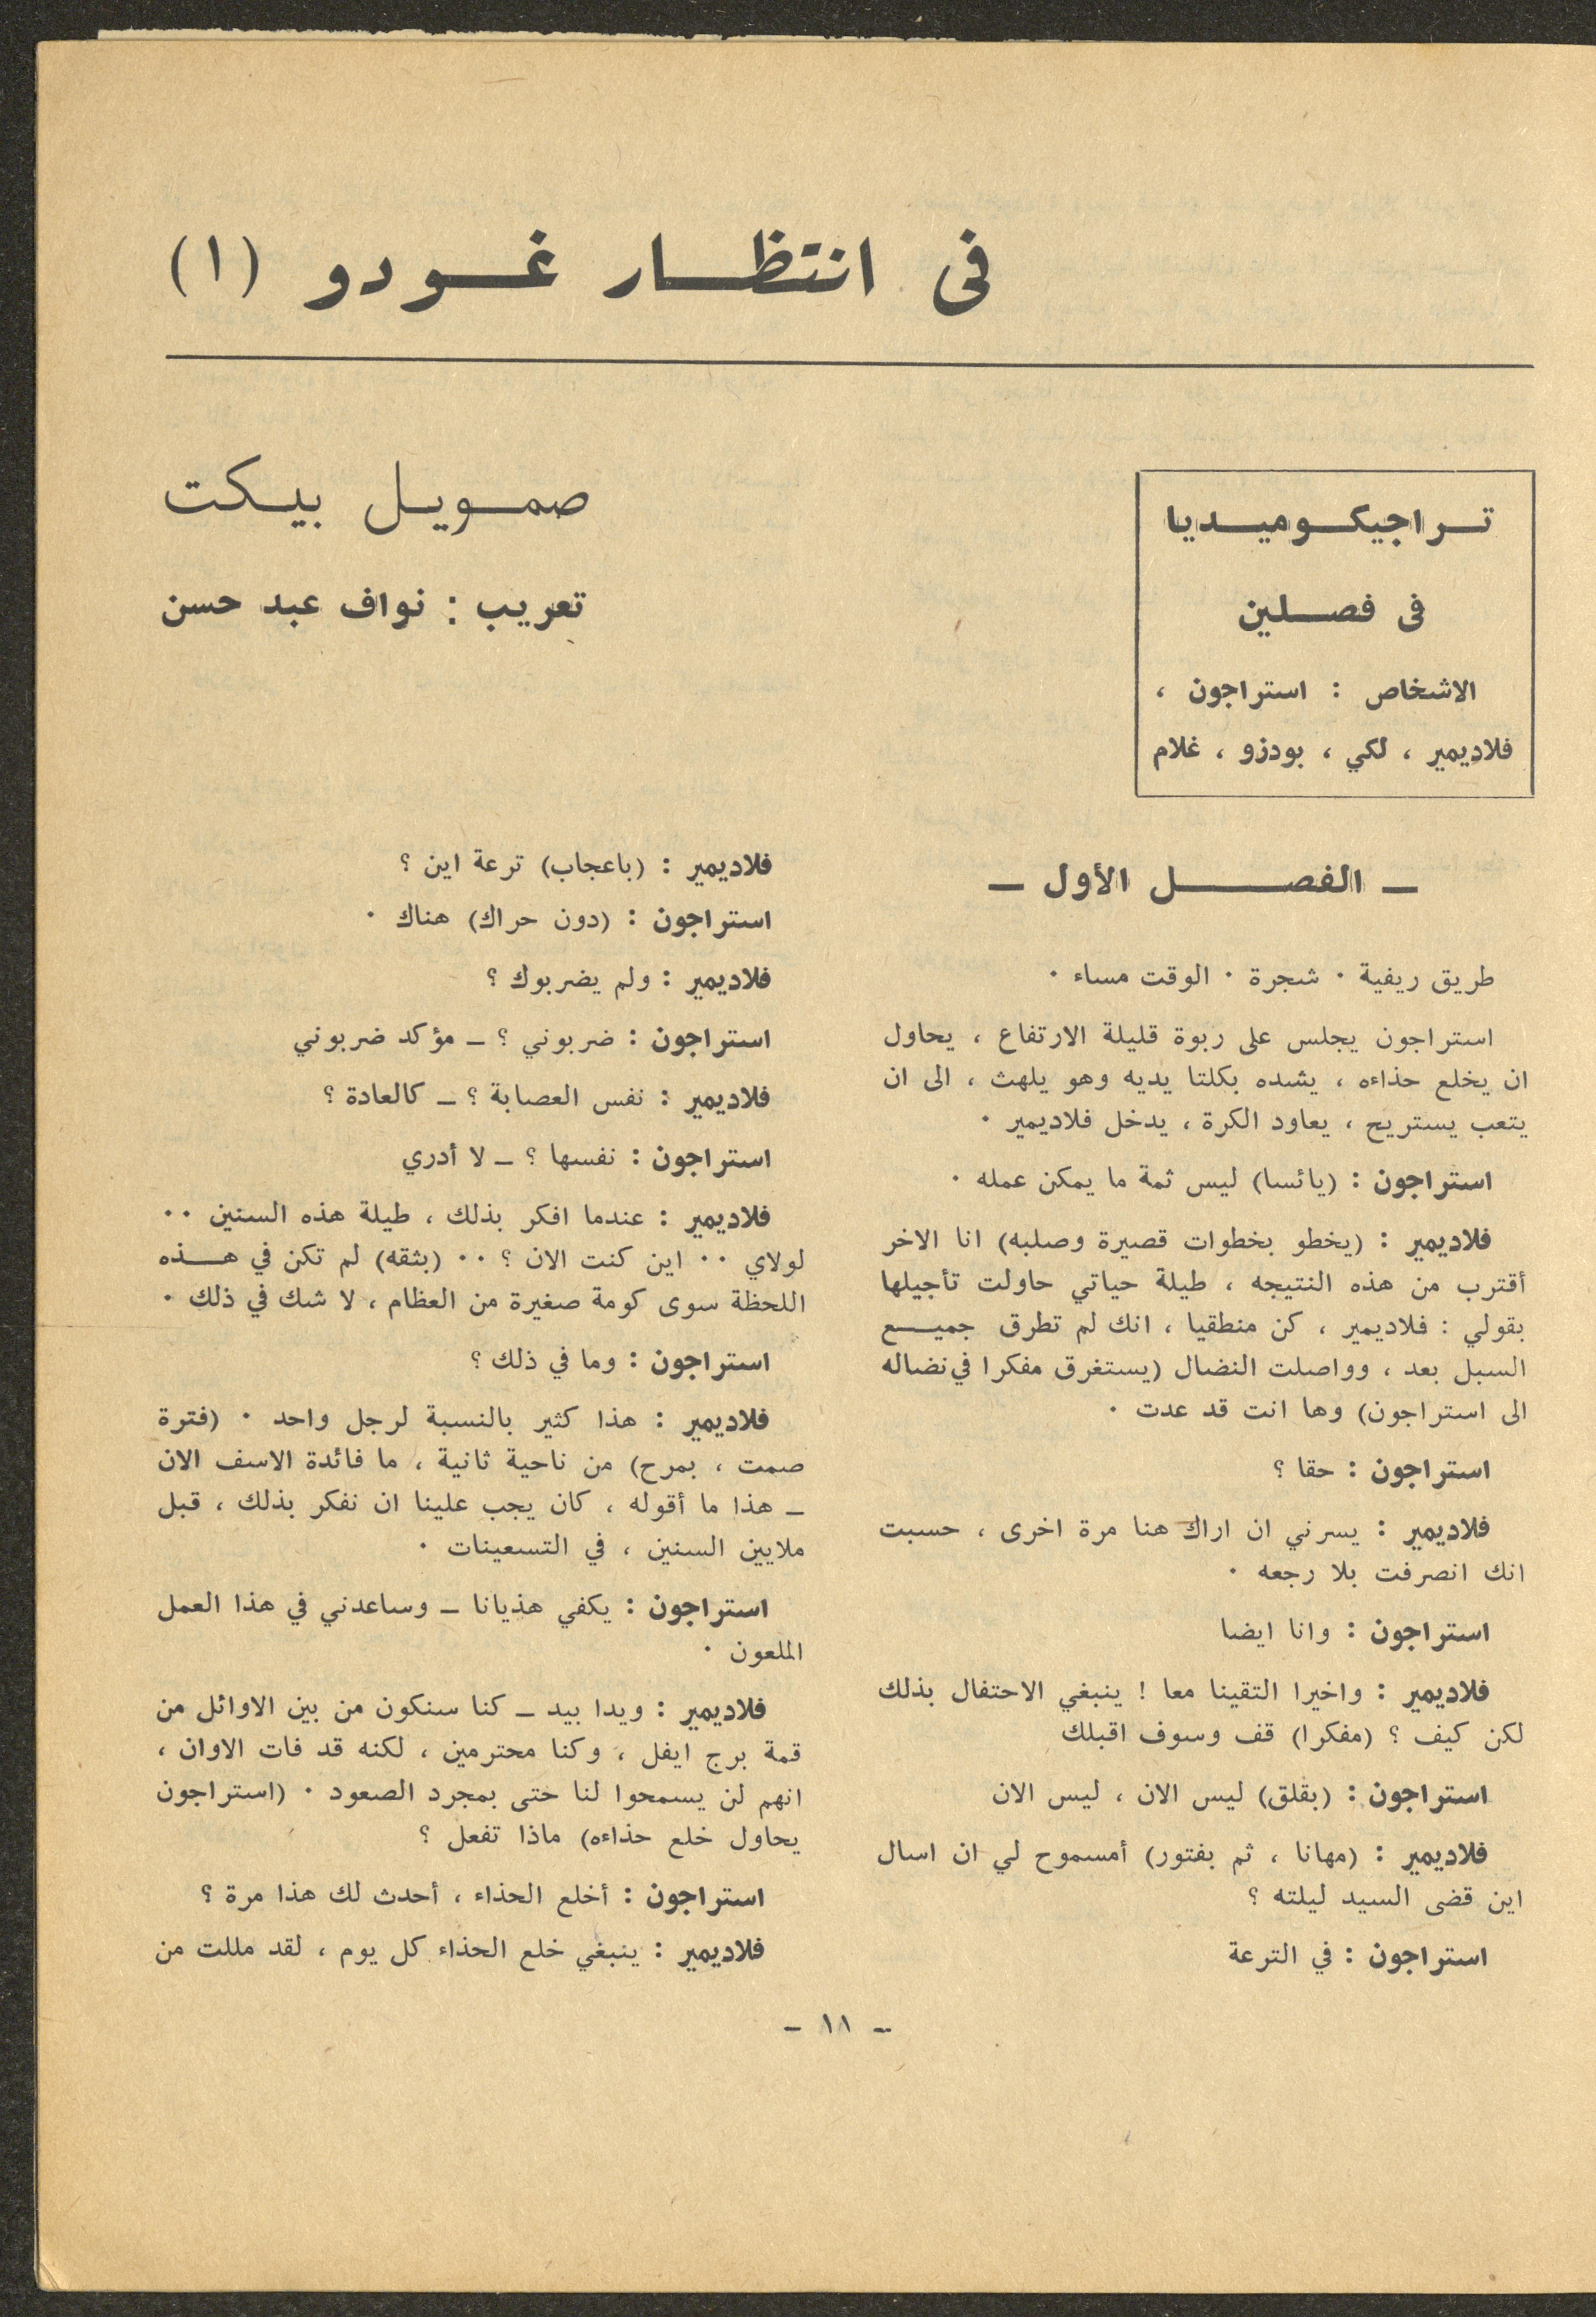 فى انتظار غودو (١)
صمويل بيكت
تعريب : نواف عبد حسن
تراجيكوميديا
فى فصلين
الاشخاص : استراجون ،
فلاديمير ، لكي ، بودزو ، غلام
ـ الفصل الأول ـ
طريق ريفية ٠ شجرة ٠ الوقت مساء ٠
استراجون يجلس على ربوة قليلة الارتفاع ، يحاول
ان يخلع حذاءه ، يشده بكلتا يديه وهو يلهث ، الى ان
يتعب يستريح ، يعاود الكرة ، يدخل فلاديمير ٠
استراجون : (يائسا) ليس ثمة ما يمكن عمله ٠
فلاديمير : (يخطو بخطوات قصيرة وصلبه) انا الاخر
أقترب من هذه النتيجه ، طيلة حياتي حاولت تأجيلها
بقولي : فلاديمير ، كن منطقيا ، انك لم تطرق جميع
السبل بعد ، وواصلت النضال (يستغرق مفكرا في نضاله
الى استراجون) وها انت قد عدت ٠
استراجون : حقا ؟
فلاديمير : يسرني ان اراك هنا مرة اخرى ، حسبت
انك انصرفت بلا رجعه ٠
استراجون : وانا ايضا
فلاديمير : واخيرا التقينا معا ! ينبغي الاحتفال بذلك
لكن كيف ؟ (مفكرا) قف وسوف اقبلك
استراجون : (بقلق) ليس الان ، ليس الان
فلاديمير : (مهانا ، ثم بفتور) أمسموح لي ان اسال
اين قضى السيد ليلته ؟
استراجون : في الترعة
فلاديمير : (باعجاب) ترعة اين ؟
استراجون : (دون حراك) هناك ٠
فلاديمير : ولم يضربوك ؟
استراجون : ضربوني ؟ ـ مؤكد ضربوني
فلاديمير : نفس العصابة ؟ ـ كالعادة ؟
استراجون : نفسها ؟ ـ لا أدري
فلاديمير : عندما افكر بذلك ، طيلة هذه السنين ٠٠
لولاي ٠٠ اين كنت الان ؟ ٠٠ (بثقه) لم تكن في هذه
اللحظة سوى كومة صغيرة من العظام ، لا شك في ذلك ٠
استراجون : وما في ذلك ؟
فلاديمير : هذا كثير بالنسبة لرجل واحد ٠ (فترة
صمت ، بمرح) من ناحية ثانية ، ما فائدة الاسف الان
ـ هذا ما أقوله ، كان يجب علينا ان نفكر بذلك ، قبل
ملايين السنين ، في التسعينات ٠
استراجون : يكفي هذيانا ـ وساعدني في هذا العمل
الملعون ٠
فلاديمير : ويدا بيد ـ كنا سنكون من بين الاوائل من
قمة برج ايفل ، وكنا محترمين ، لكنه قد فات الاوان ،
انهم لن يسمحوا لنا حتى بمجرد الصعود ٠ (استراجون
يحاول خلع حذاءه) ماذا تفعل ؟
استراجون : أخلع الحذاء ، أحدث لك هذا مرة ؟
فلاديمير : ينبغي خلع الحذاء كل يوم ، لقد مللت من
ـ ١١ ـ